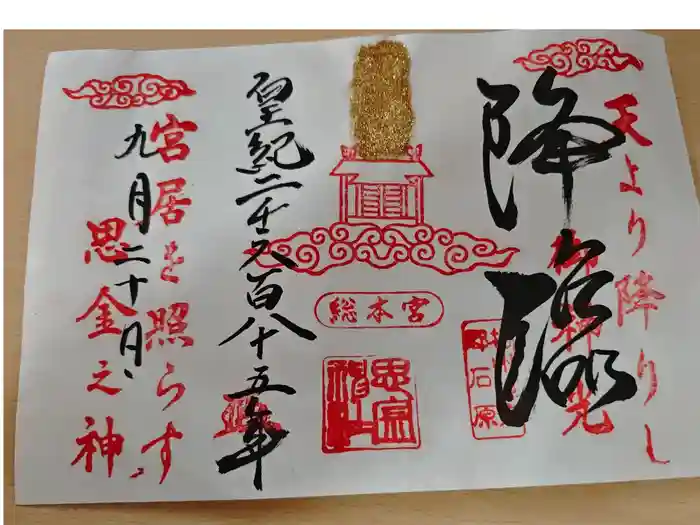 天より降りし
御神光
降臨
総本宮
思金
神社
皇紀二千六百八十五年
宮居を照らす
九月二十日
思金之神